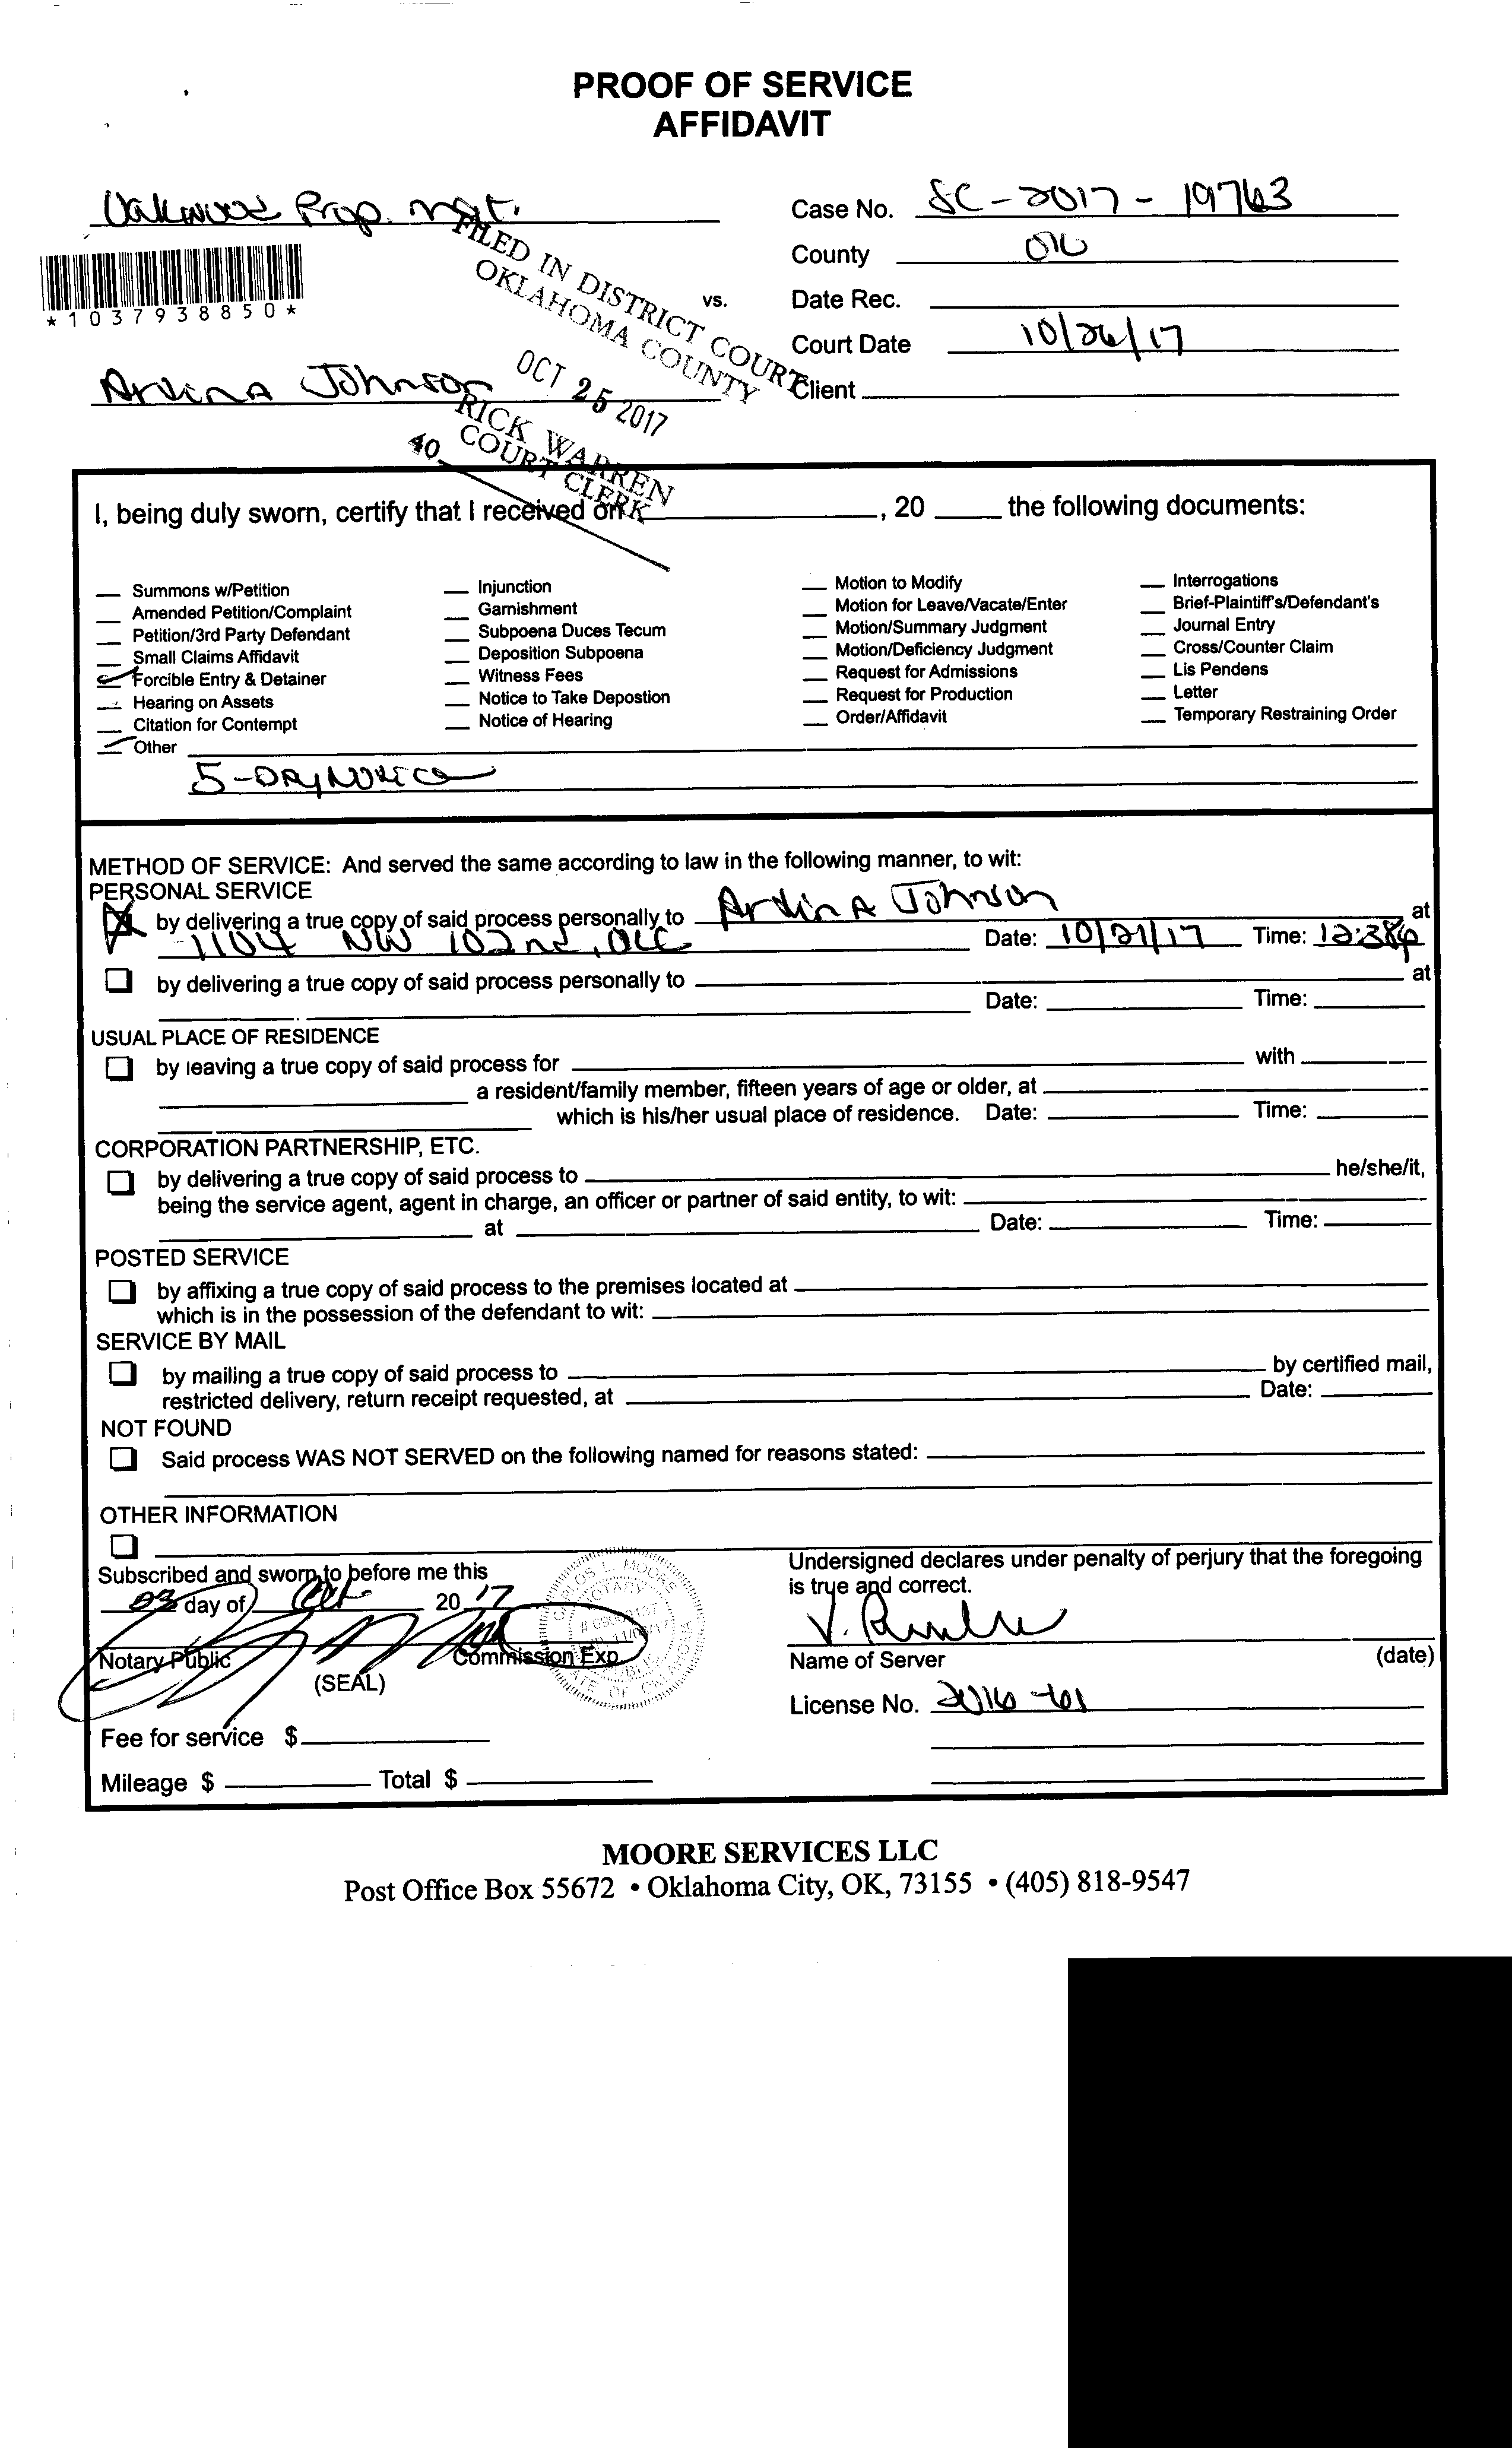 PROOF OF SERVICE
AFFIDAVIT
Oakwood Prop. mgt.
Case No. SC-2017-19763
County OK
*1037938850*
vs.
Date Rec.
Court Date 10/26/17
Ardina Johnson
Client
FILED IN DISTRICT COURT
OKLAHOMA COUNTY
OCT 25 2017
RICK WARREN
COURT CLERK
40
I, being duly sworn, certify that I received on , 20 the following documents:
Summons w/Petition
Amended Petition/Complaint
Petition/3rd Party Defendant
Small Claims Affidavit
Forcible Entry & Detainer
Hearing on Assets
Citation for Contempt
Other
Injunction
Garnishment
Subpoena Duces Tecum
Deposition Subpoena
Witness Fees
Notice to Take Depostion
Notice of Hearing
Motion to Modify
Motion for Leave/Vacate/Enter
Motion/Summary Judgment
Motion/Deficiency Judgment
Request for Admissions
Request for Production
Order/Affidavit
Interrogations
Brief-Plaintiff's/Defendant's
Journal Entry
Cross/Counter Claim
Lis Pendens
Letter
Temporary Restraining Order
5-DAY NOTICE
METHOD OF SERVICE: And served the same according to law in the following manner, to wit:
PERSONAL SERVICE
by delivering a true copy of said process personally to Ardina Johnson at
1104 NW 102nd, OKC Date: 10/21/17 Time: 12:38p
by delivering a true copy of said process personally to at
Date: Time:
USUAL PLACE OF RESIDENCE
by leaving a true copy of said process for with
a resident/family member, fifteen years of age or older, at
which is his/her usual place of residence. Date: Time:
CORPORATION PARTNERSHIP, ETC.
by delivering a true copy of said process to he/she/it,
being the service agent, agent in charge, an officer or partner of said entity, to wit:
at Date: Time:
POSTED SERVICE
by affixing a true copy of said process to the premises located at
which is in the possession of the defendant to wit:
SERVICE BY MAIL
by mailing a true copy of said process to by certified mail,
restricted delivery, return receipt requested, at Date:
NOT FOUND
Said process WAS NOT SERVED on the following named for reasons stated:
OTHER INFORMATION
Subscribed and sworn to before me this
23 day of Oct 20 17
Notary Public
(SEAL)
Commission Exp.
CARLOS L. MOORE
NOTARY
PUBLIC
STATE OF OKLAHOMA
Undersigned declares under penalty of perjury that the foregoing
is true and correct.
Name of Server (date)
License No. 2016-101
Fee for service $
Mileage $ Total $
MOORE SERVICES LLC
Post Office Box 55672 • Oklahoma City, OK, 73155 • (405) 818-9547